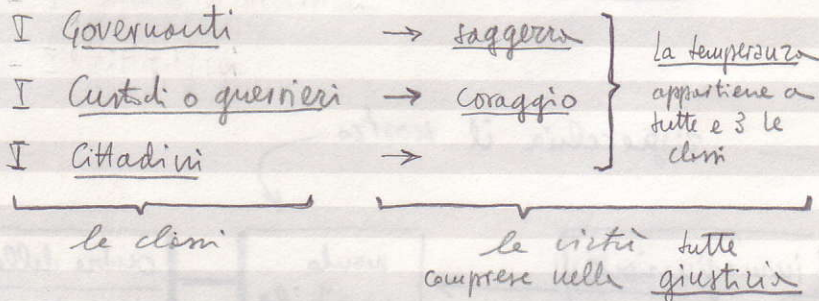 I Governanti → saggezza
I Custodi o guerrieri → coraggio
I Cittadini →
La temperanza
appartiene a
tutte e 3 le
classi
le classi
le virtù tutte
comprese nella giustizia